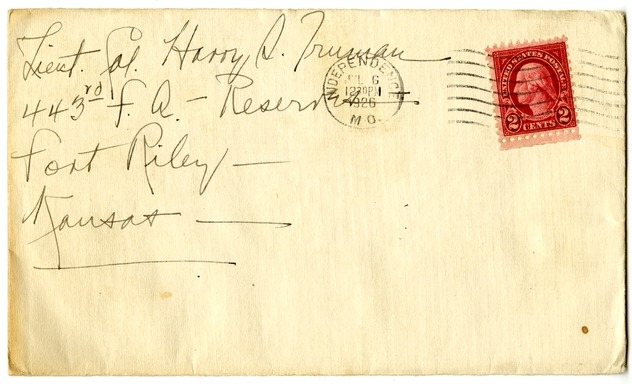 Lieut. Col. Harry S. Truman
443rd F. A. - Reserve
Fort Riley -
Kansas -
INDEPENDENCE
JUL 6
1230PM
1926
MO.
UNITED STATES POSTAGE
2 CENTS 2